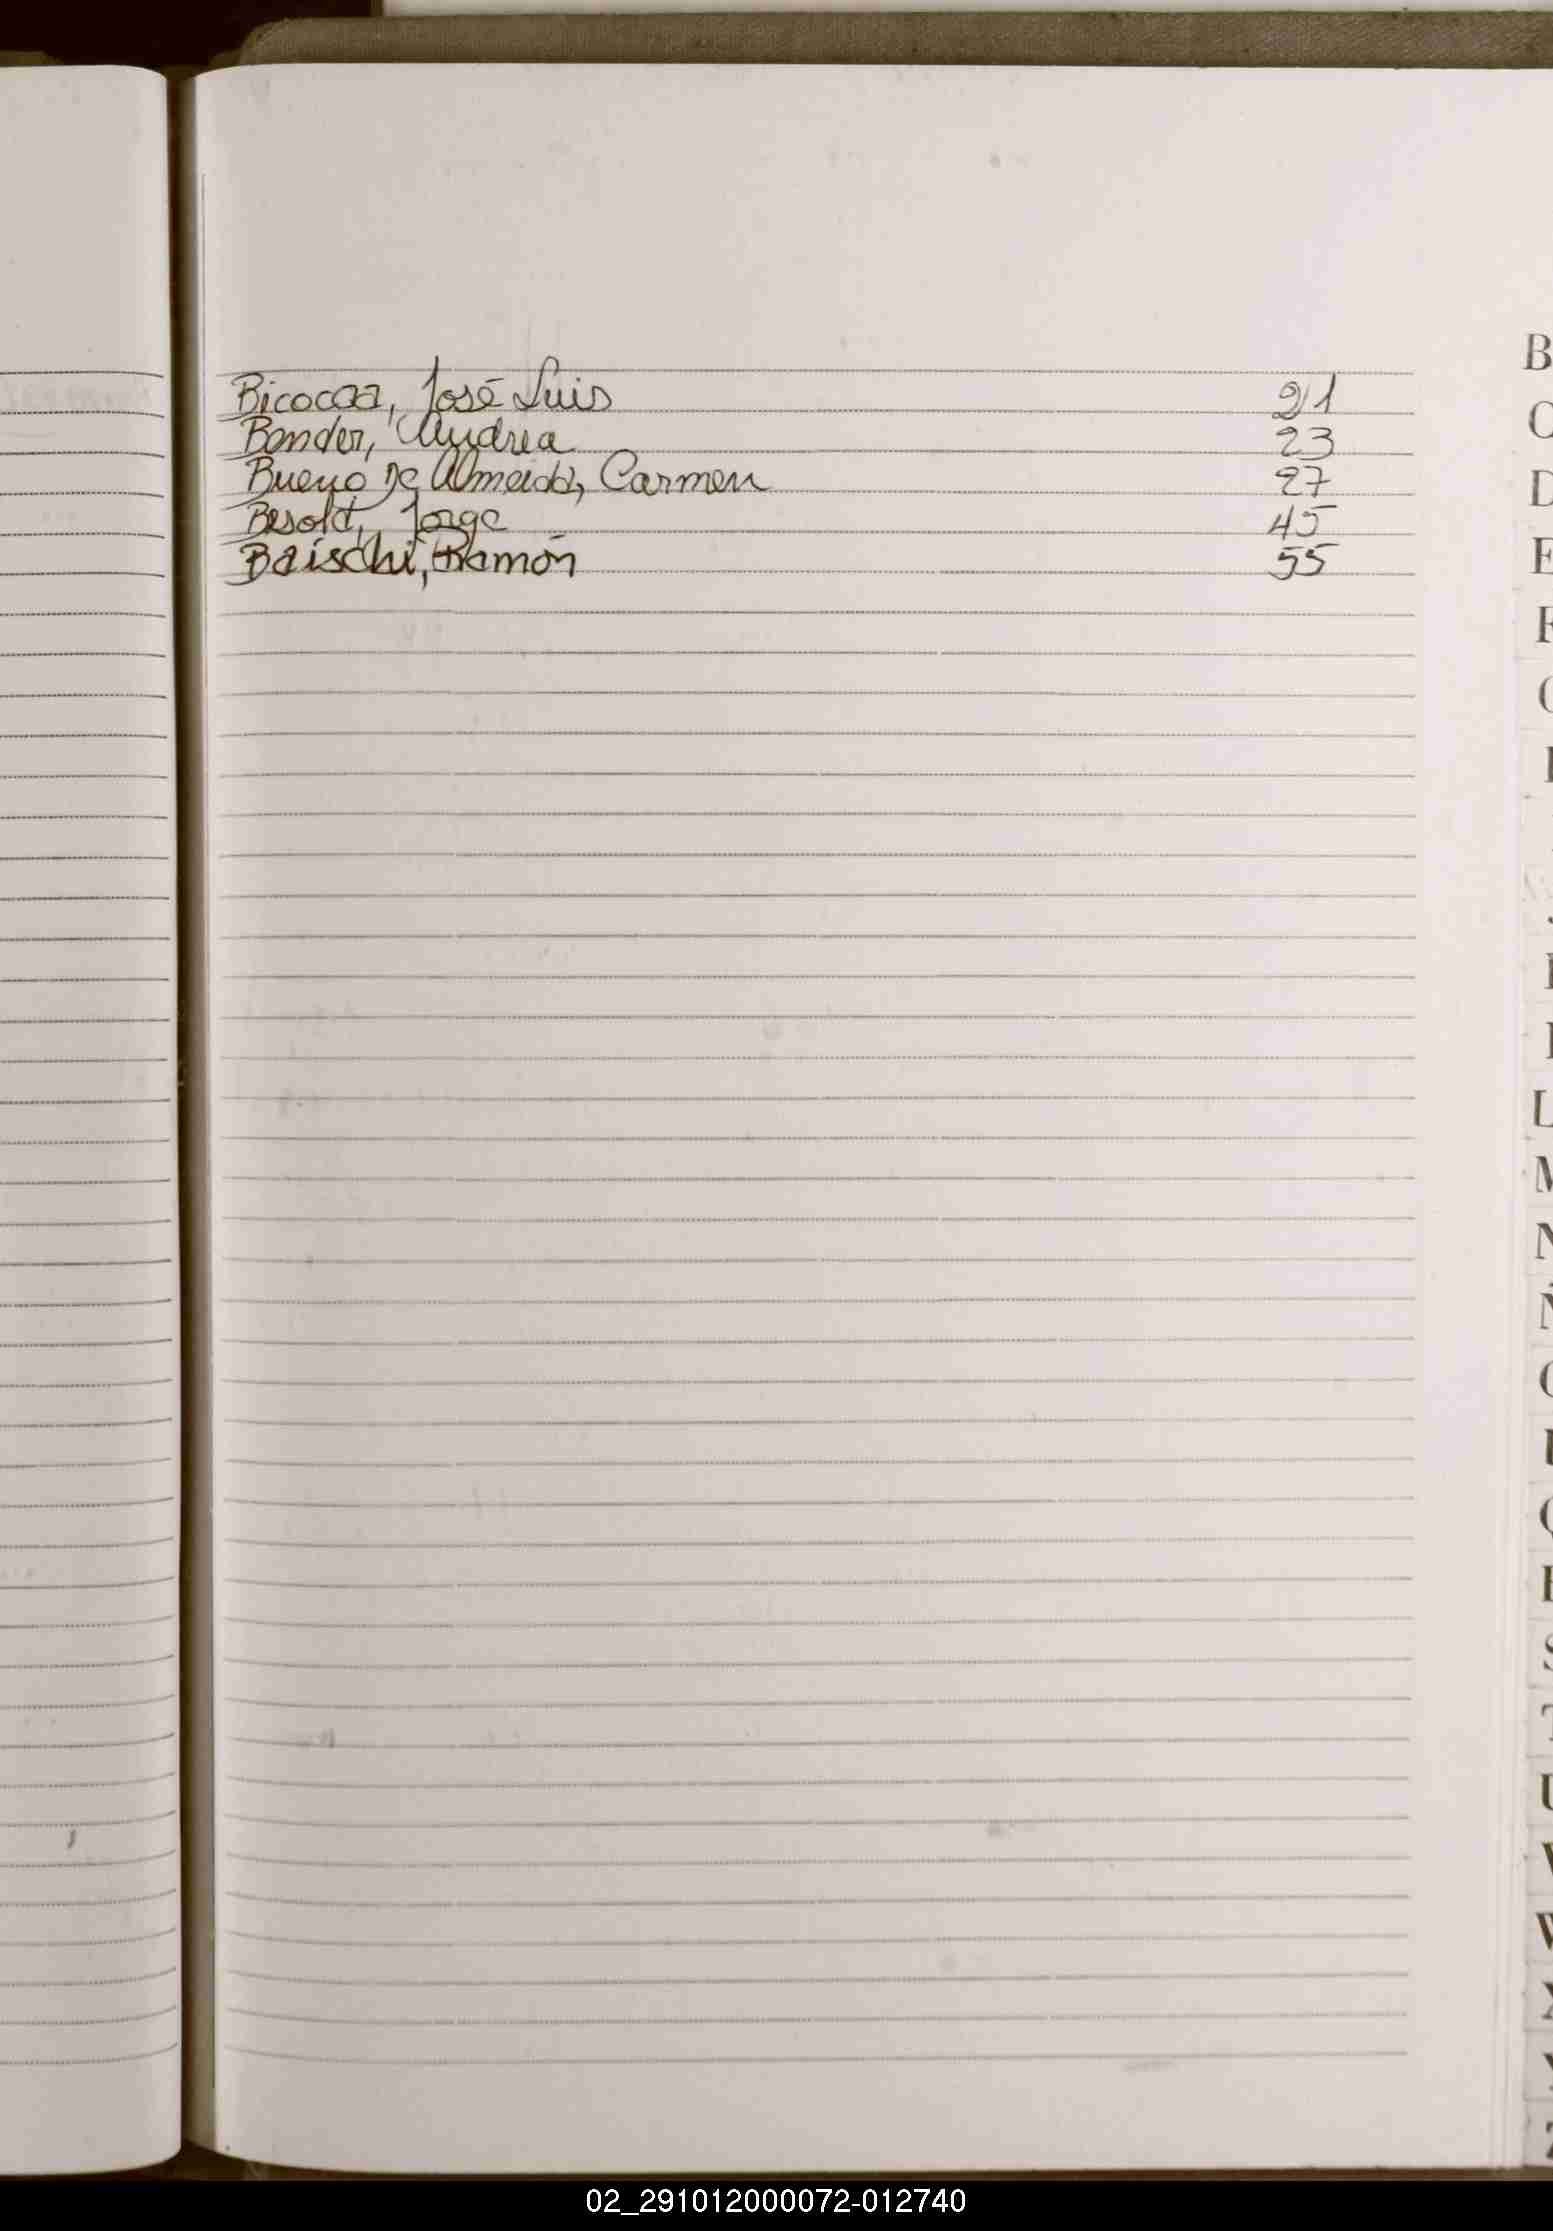 Bicocca, José Luis 21
Bender, Andrea 23
Bueno De Almeida, Carmen 27
Besold, Jorge 45
Baischi, Ramón 55
B
C
D
E
F
L
M
N
Ñ
Q
S
T
U
V
W
X
Y
Z
02_291012000072-012740